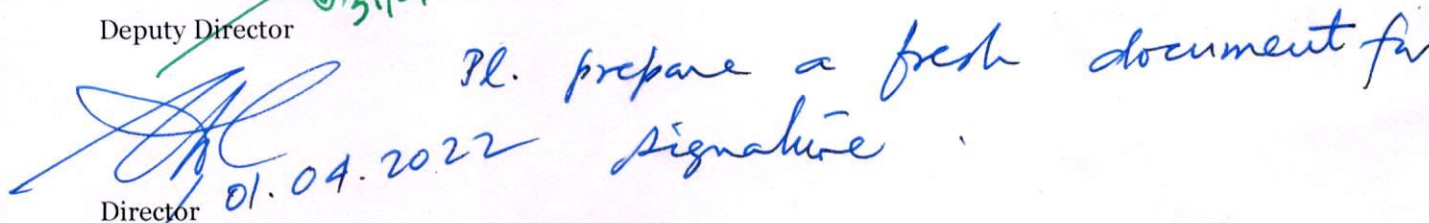 Deputy Director
Pl. prepare a fresh document for
signature.
01.04.2022
Director